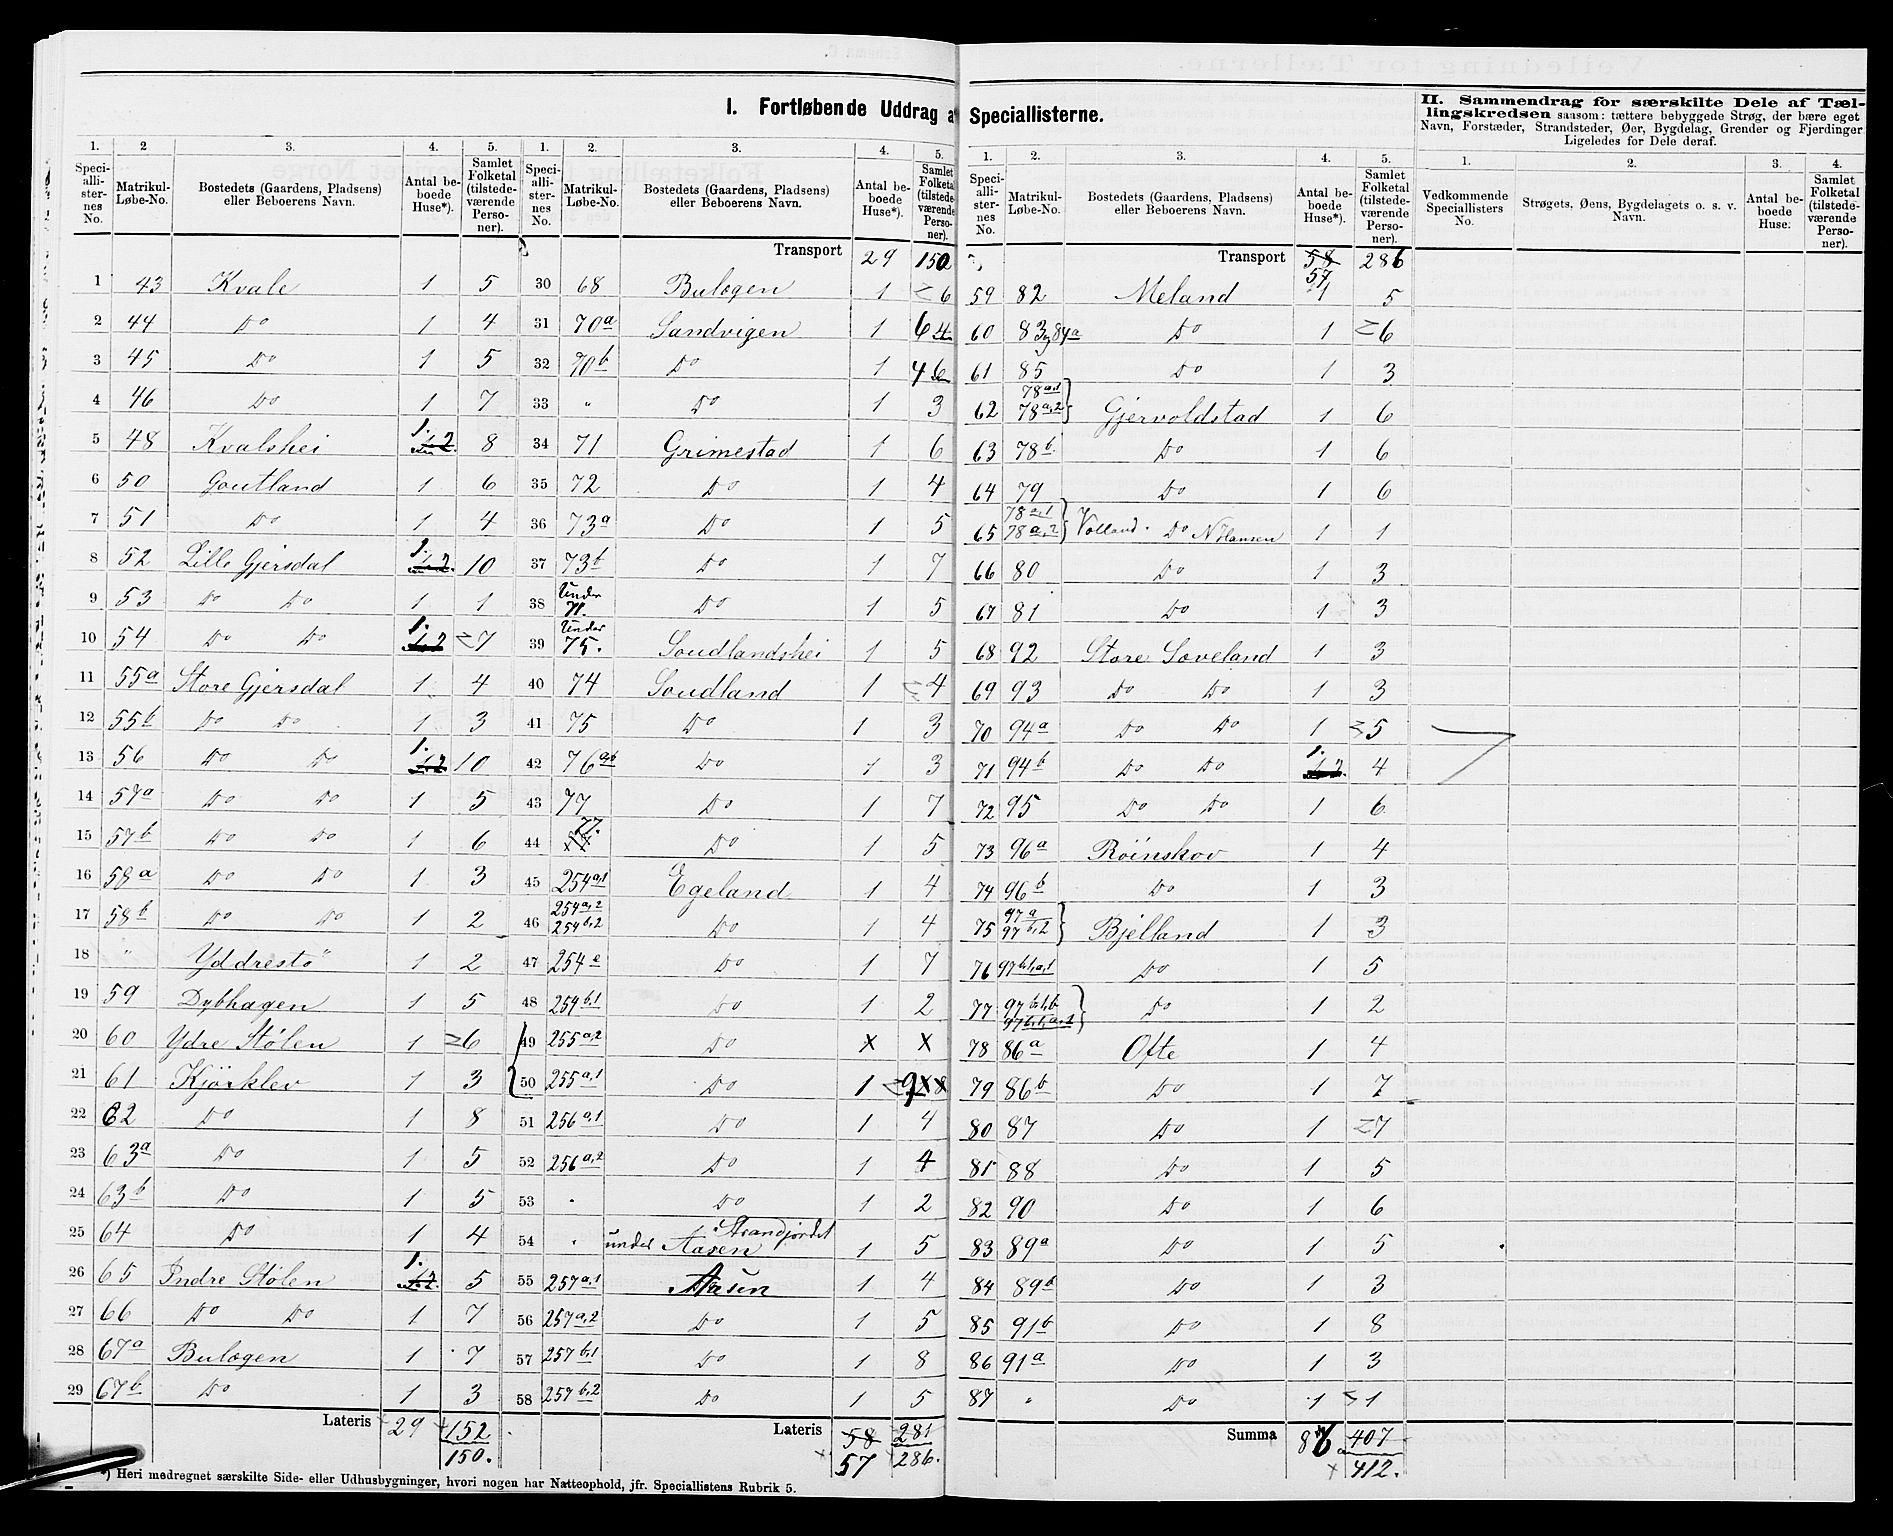 I. Fortløbende Uddrag af Speciallisterne.
1. 2 3. 4. 5.
Speciallisternes No. Matrikul-Løbe-No. Bostedets (Gaardens, Pladsens) eller Beboerens Navn. Antal beboede Huse*). Samlet Folketal (tilstedeværende Personer).
1 43 Kvale 1 5
2 44 Do 1 4
3 45 Do 1 5
4 46 Do 1 7
5 48 Kvalshei 1. 8
6 50 Goutland 1 6
7 51 Do 1 4
8 52 Lille Gjersdal 1. 10
9 53 Do Do 1 1
10 54 Do Do 1. 7
11 55a Store Gjersdal 1 4
12 55b Do Do 1 3
13 56 Do Do 1. 10
14 57a Do Do 1 5
15 57b Do Do 1 6
16 58a Do Do 1 3
17 58b Do Do 1 2
18 " Yddrestö 1 2
19 59 Dybhagen 1 5
20 60 Ydre Stølen 1 6
21 61 Kjörklev 1 3
22 62 Do 1 8
23 63a Do 1 5
24 63b Do 1 5
25 64 Do 1 4
26 65 Indre Stølen 1. 5
27 66 Do Do 1 7
28 67a Bulægen 1 7
29 67b Do 1 3
Lateris 29 152
150.
*) Heri medregnet særskilte Side- eller Udhusbygninger, hvori nogen har Natteophold, jfr. Speciallistens Rubrik 5.
1. 2. 3. 4. 5.
Speciallisternes No. Matrikul-Løbe-No. Bostedets (Gaardens, Pladsens) eller Beboerens Navn. Antal beboede Huse*). Samlet Folketal (tilstedeværende Personer).
Transport 29 150
30 68 Bulægen 1 6
31 70a Sandvigen 1 6
32 70b Do 1 4
33 " Do 1 3
34 71 Grimestad 1 6
35 72 Do 1 4
36 73a Do 1 5
37 73b Do 1 7
38 Under 71. Do 1 5
39 Under 75. Soudlandshei 1 5
40 74 Soudland 1 4
41 75 Do 1 3
42 76ab Do 1 3
43 77 Do 1 7
44 77. Do 1 5
45 254a,1 Egeland 1 4
46 254a,2 254b,2 Do 1 4
47 254c Do 1 7
48 254b,1 Do 1 2
49 255a,2 Do x x
50 255a,1 Do 1 9
51 256a,1 Do 1 4
52 256a,2 Do 1 4
53 " Do 1 2
54 " under Aasen Strandjordet 1 5
55 257a,1 Aasen 1 4
56 257a,2 Do 1 5
57 257b,1 Do 1 8
58 257b,2 Do 1 5
Lateris 58 281
57 286.
1. 2. 3. 4. 5.
Speciallisternes No. Matrikul-Løbe-No. Bostedets (Gaardens, Pladsens) eller Beboerens Navn. Antal beboede Huse*). Samlet Folketal (tilstedeværende Personer).
Transport 58 286
57
59 82 Meland 1 5
60 83 og 84a Do 1 6
61 85 Do 1 3
62 78a,1 78a,2 Gjervoldstad 1 6
63 78b Do 1 6
64 79 Do 1 6
65 78a,1 78a,2 Volland. Do N Hansen 1 1
66 80 Do 1 3
67 81 Do 1 3
68 92 Store Soveland 1 3
69 93 Do Do 1 3
70 94a Do Do 1 5
71 94b Do Do 1. 4
72 95 Do Do 1 6
73 96a Röinskov 1 4
74 96b Do 1 3
75 97a 97b,2 Bjelland 1 3
76 97b,1,a,1 Do 1 5
77 97b,1,b 97b,1,a,2 Do 1 2
78 86a Ofte 1 4
79 86b Do 1 7
80 87 Do 1 7
81 88 Do 1 5
82 90 Do 1 6
83 89a Do 1 5
84 89b Do 1 3
85 91b Do 1 8
86 91a Do 1 3
87 " Do 1 1
Summa 86 407
412.
II. Sammendrag for særskilte Dele af Tællingskredsen saasom: tættere bebyggede Strøg, der bære eget
Navn, Forstæder, Strandsteder, Øer, Bygdelag, Grender og Fjerdinger.
Ligeledes for Dele deraf.
1. 2. 3. 4.
Vedkommende Speciallisters No. Strøgets, Øens, Bygdelagets o. s. v. Navn. Antal beboede Huse. Samlet Folketal (tilstedeværende Personer).